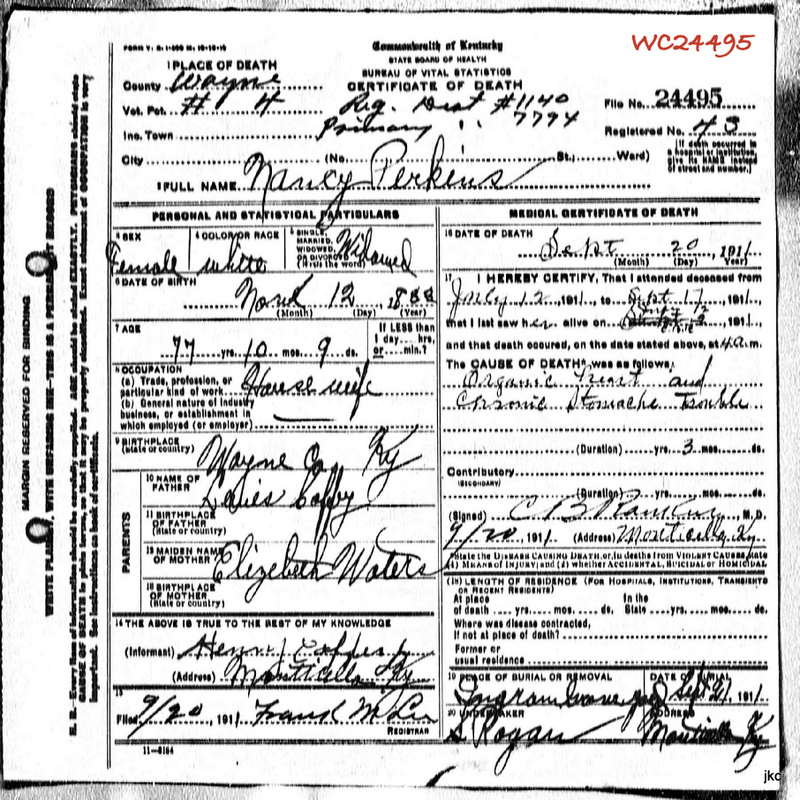 WC24495
FORM V. S. 1-
Commonwealth of Kentucky
STATE BOARD OF HEALTH
BUREAU OF VITAL STATISTICS
CERTIFICATE OF DEATH
1 PLACE OF DEATH
County Wayne
Vot. Pct. # 4
Reg. Dist #1140
File No. 24495
Inc. Town
Primary " 7794
Registered No. 43
City (No. St.; Ward)
[If death occurred in a hospital or institution, give its NAME instead of street and number.]
2 FULL NAME Nancy Perkins
PERSONAL AND STATISTICAL PARTICULARS
3 SEX Female
4 COLOR OR RACE white
5 SINGLE, MARRIED, WIDOWED, OR DIVORCED (Write the word) Widowed
6 DATE OF BIRTH
12
(Month) (Day) (Year)
7 AGE
77 yrs. 10 mos. 9 ds.
If LESS than 1 day hrs. or min.?
8 OCCUPATION
(a) Trade, profession, or particular kind of work House wife
(b) General nature of industry business, or establishment in which employed (or employer)
9 BIRTHPLACE
(State or country) Wayne Co. Ky
PARENTS
10 NAME OF FATHER
11 BIRTHPLACE OF FATHER
(State or country)
12 MAIDEN NAME OF MOTHER Elizebeth Waters
13 BIRTHPLACE OF MOTHER
(State or country)
14 THE ABOVE IS TRUE TO THE BEST OF MY KNOWLEDGE
(Informant) Henry
(Address) Monticello Ky
15
Filed 9/20, 191
REGISTRAR
11-6184
MEDICAL CERTIFICATE OF DEATH
16 DATE OF DEATH
Sept 20, 1911
(Month) (Day) (Year)
17 I HEREBY CERTIFY, That I attended deceased from
July 12, 1911, to Sept 17, 1911,
that I last saw her alive on 1911,
and that death occurred, on the date stated above, at 4 a.m.
The CAUSE OF DEATH* was as follows:
Organic Heart and
Chronic Stomache Trouble
(Duration) yrs. 3 mos. ds.
Contributory
(SECONDARY)
(Duration) yrs. mos. ds.
(Signed) C B M.D.
9/20, 191 (Address) Monticello Ky.
*State the DISEASE CAUSING DEATH, or, in deaths from VIOLENT CAUSES, state
(1) MEANS OF INJURY; and (2) whether ACCIDENTAL, SUICIDAL or HOMICIDAL
18 LENGTH OF RESIDENCE (FOR HOSPITALS, INSTITUTIONS, TRANSIENTS OR RECENT RESIDENTS)
At place of death yrs. mos. ds. In the State yrs. mos. ds.
Where was disease contracted,
if not at place of death?
Former or
usual residence
19 PLACE OF BURIAL OR REMOVAL
DATE OF BURIAL
Ingram Sept 21, 191
20 UNDERTAKER
ADDRESS
Monticello Ky
MARGIN RESERVED FOR BINDING
jkc